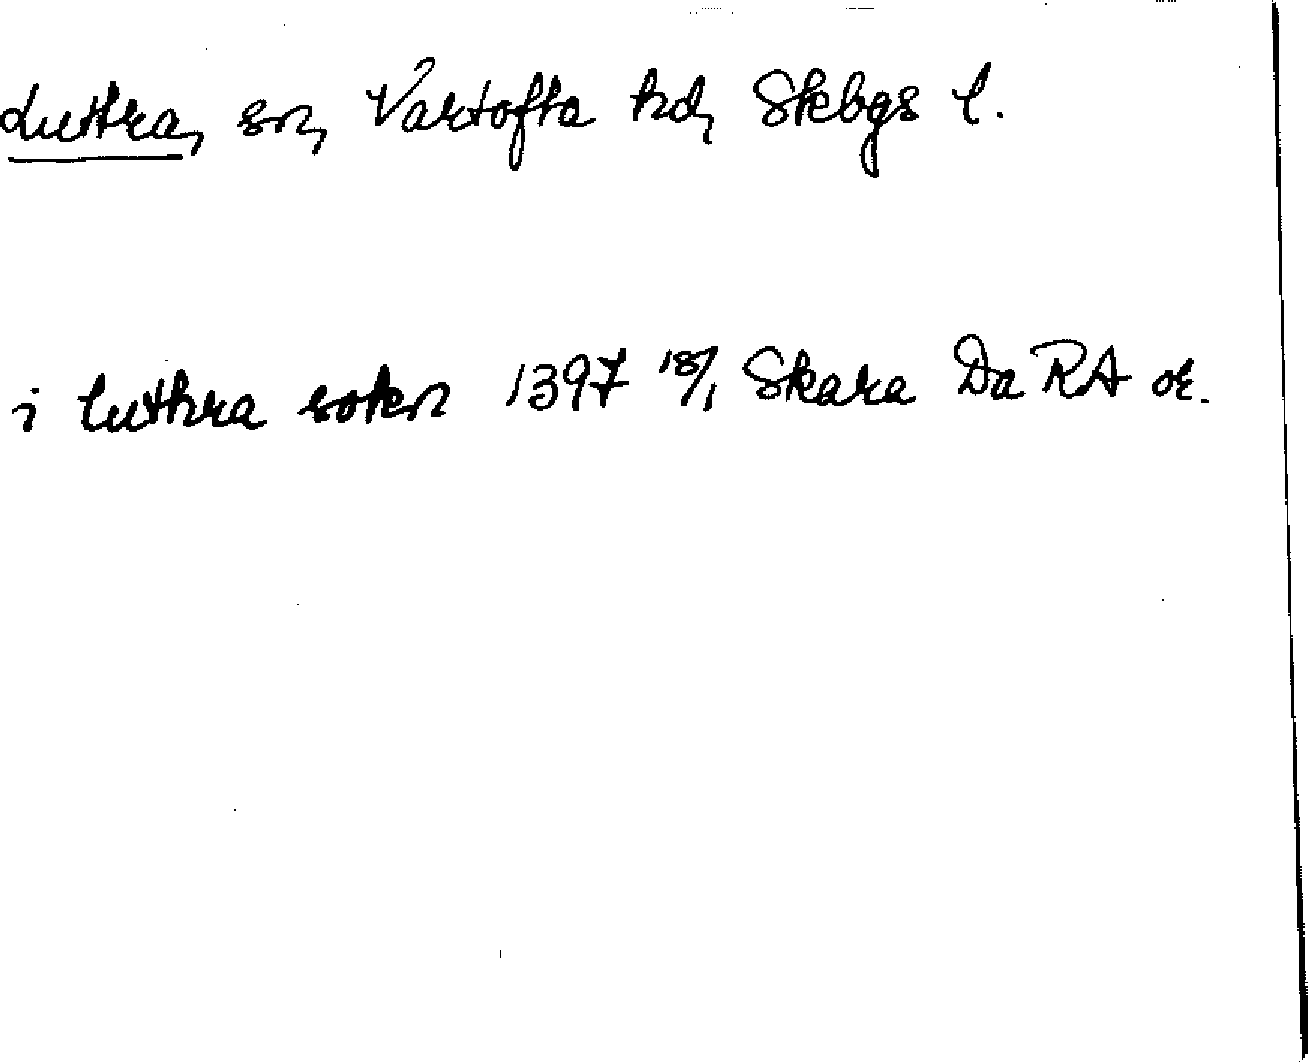 Luttra, sn, Vartofta hd, Skbgs l.
i luthra sokn 1397 18/1 Skara Da RA or.